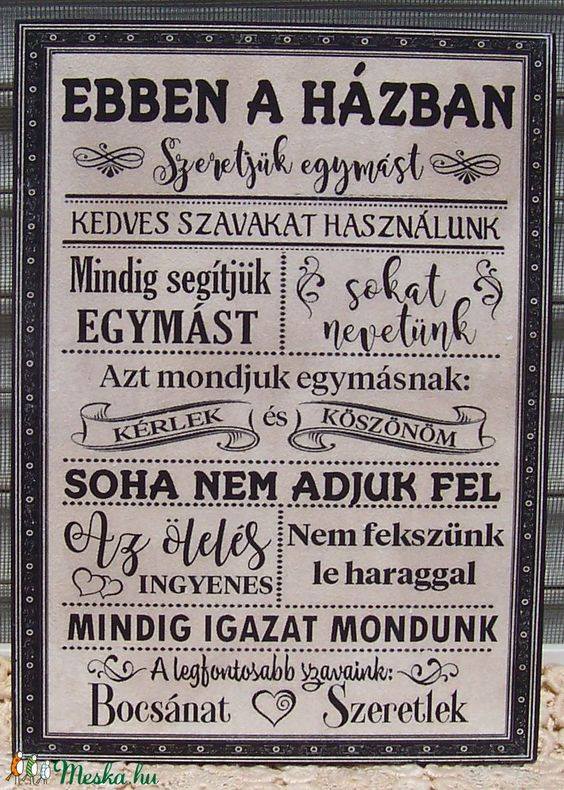 EBBEN A HÁZBAN
Szeretjük egymást
KEDVES SZAVAKAT HASZNÁLUNK
Mindig segítjük
EGYMÁST
sokat
nevetünk
Azt mondjuk egymásnak:
KÉRLEK és KÖSZÖNÖM
SOHA NEM ADJUK FEL
Az ölelés
INGYENES
Nem fekszünk
le haraggal
MINDIG IGAZAT MONDUNK
A legfontosabb szavaink:
Bocsánat Szeretlek
Meska.hu